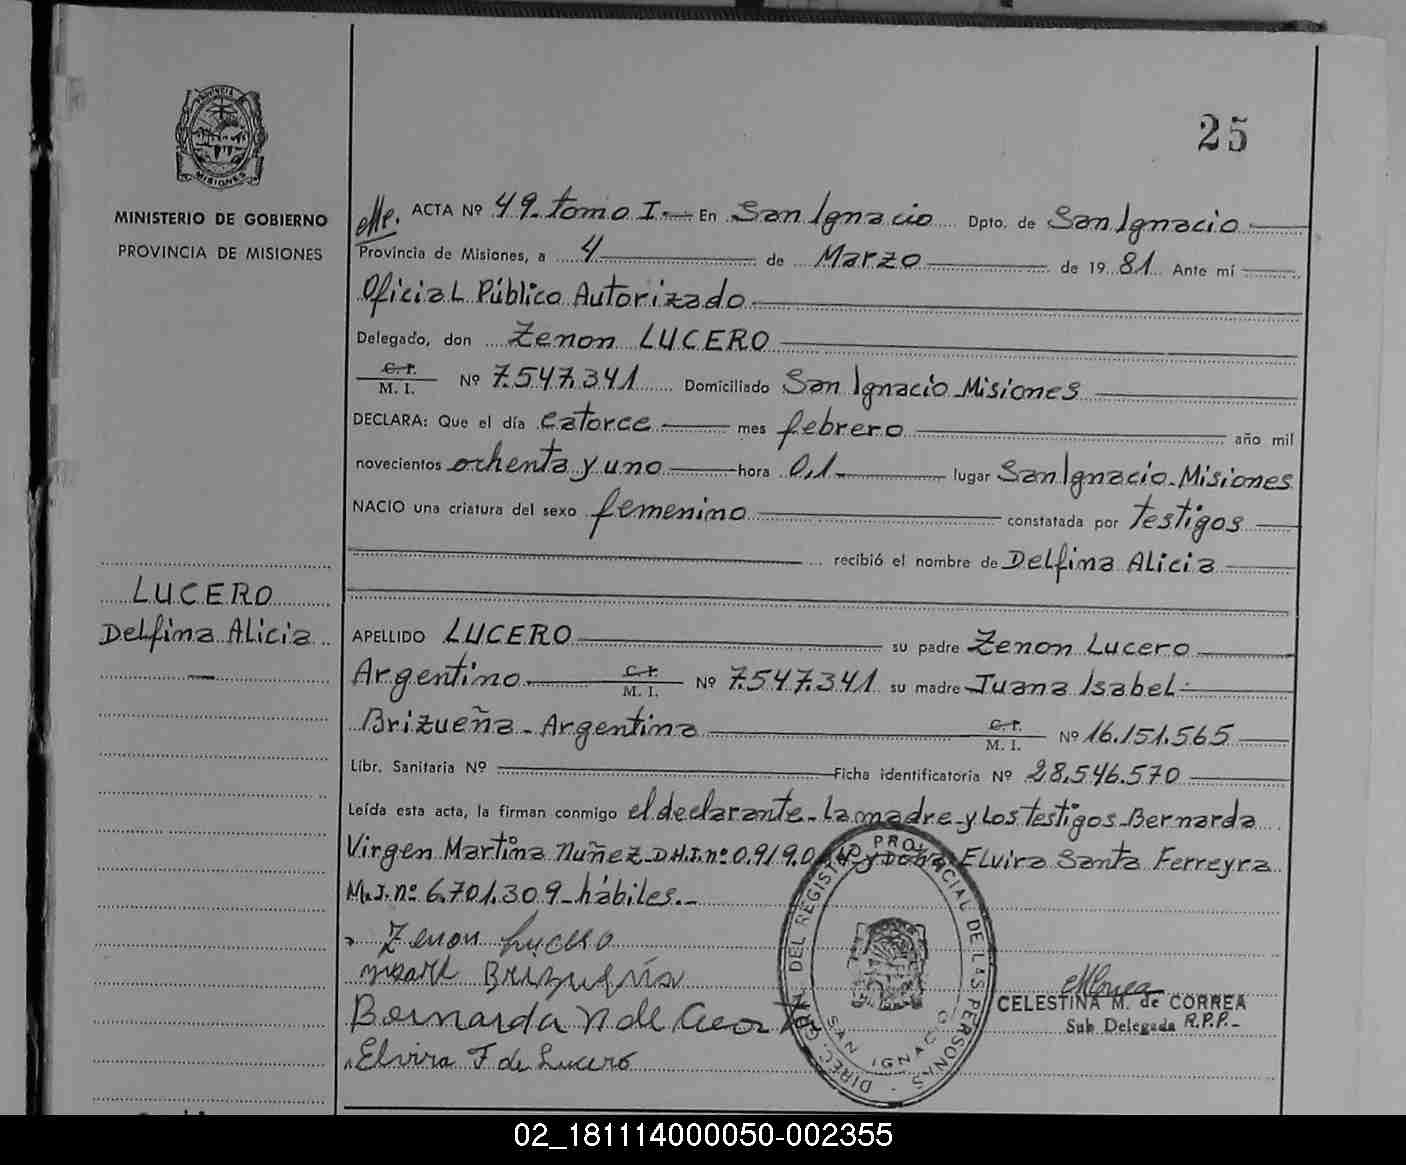 25
PROVINCIA DE
MISIONES
MINISTERIO DE GOBIERNO
PROVINCIA DE MISIONES
ACTA Nº 49. tomo I. En San Ignacio Dpto. de San Ignacio
Provincia de Misiones, a 4 de Marzo de 1981 Ante mí
Oficial Público Autorizado
Delegado, don Zenon LUCERO
C. I.
M. I. Nº 7.547.341 Domiciliado San Ignacio Misiones
DECLARA: Que el día catorce mes febrero año mil
novecientos ochenta y uno hora 0,1 lugar San Ignacio. Misiones
NACIO una criatura del sexo femenino constatada por testigos
recibió el nombre de Delfina Alicia
LUCERO
Delfina Alicia
APELLIDO LUCERO su padre Zenon Lucero
Argentino C. I. M. I. Nº 7.547.341 su madre Juana Isabel
Brizueña - Argentina C. I. M. I. Nº 16.151.565
Libr. Sanitaria Nº Ficha identificatoria Nº 28.546.570
Leída esta acta, la firman conmigo el declarante - la madre - y los testigos - Bernarda
Virgen Martina Nuñez - D.N.I. nº 0.919.0 y Doña Elvira Santa Ferreyra
M.I. nº 6.701.309 - hábiles.-
Zenon Lucero
Brizueña
Bernarda N de
Elvira F de Lucero
DIREC. GRAL. DEL REGISTRO PROVINCIAL DE LAS PERSONAS
SAN IGNACIO
CELESTINA M. de CORREA
Sub Delegada R.P.P.-
02_181114000050-002355